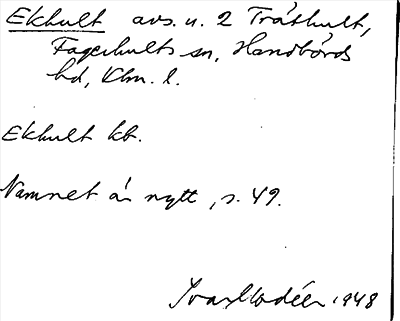 Ekhult avs. u. 2 Tråthult,
Fagerhults sn, Handbörds
hd, Klm. l.
Ekhult kb.
Namnet är nytt, s. 49.
Ivar Modéer 1948